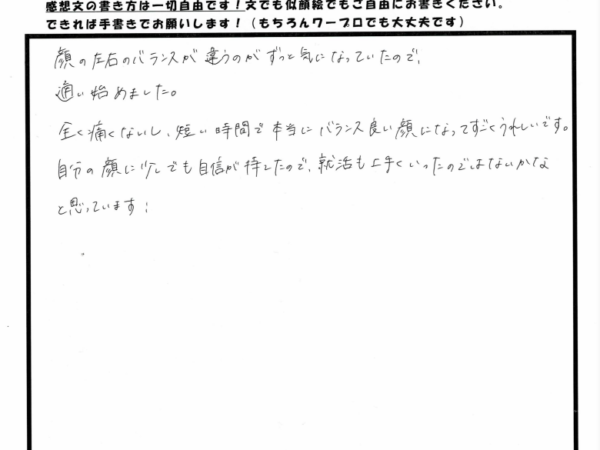 感想文の書き方は一切自由です！文でも似顔絵でもご自由にお書きください。
できれば手書きでお願いします！（もちろんワープロでも大丈夫です）
顔の左右のバランスが違うのがずっと気になっていたので、
通い始めました。
全く痛くないし、短い時間で本当にバランス良い顔になってすごくうれしいです。
自分の顔に少しでも自信が持てたので、就活も上手くいったのではないかな
と思っています！